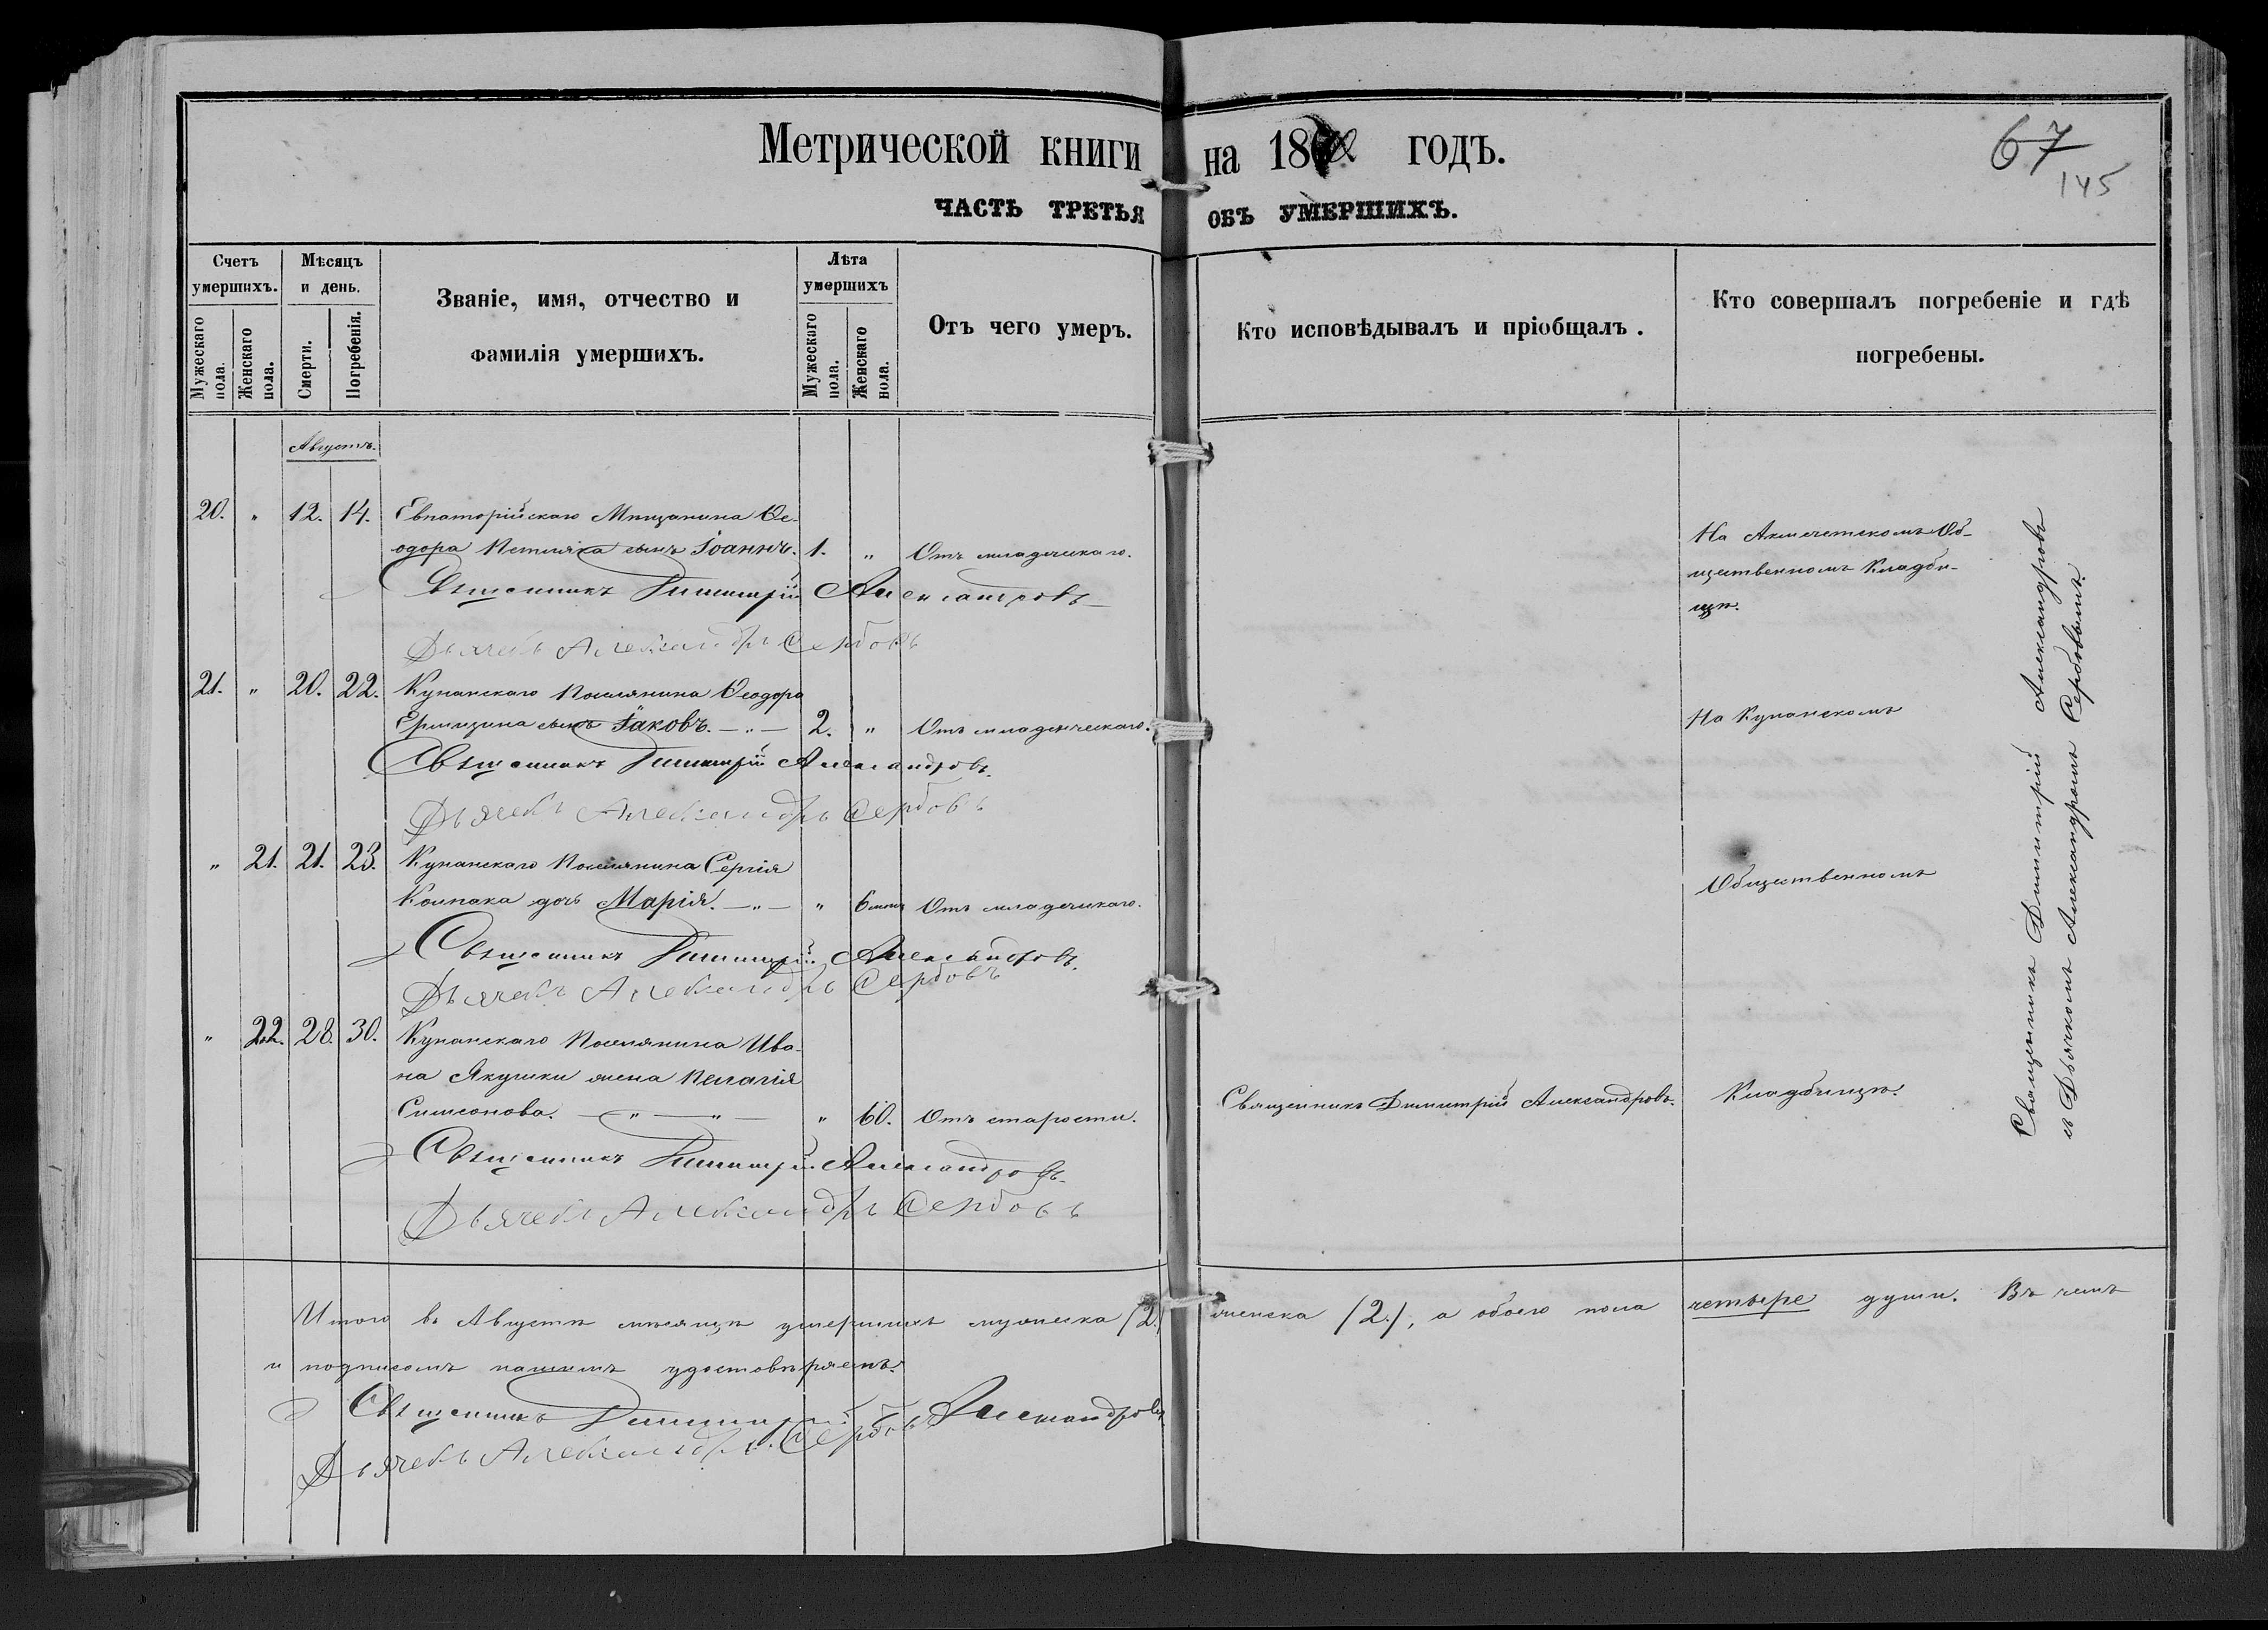 Метрической книги на 18 годъ.
67
145
ЧАСТЬ ТРЕТЬЯ ОБЪ УМЕРШИХЪ.
Счетъ умершихъ.
Мужескаго пола.
Женскаго пола.
Мѣсяцъ и день.
Смерти.
Погребенія.
Званіе, имя, отчество и
фамилія умершихъ.
Лѣта умершихъ
Мужескаго пола.
Женскаго пола.
Отъ чего умеръ.
Кто исповѣдывалъ и пріобщалъ.
Кто совершалъ погребеніе и гдѣ
погребены.
Августъ.
20. " 12. 14. Евпаторійскаго Мѣщанина Ѳе-
одора сынъ Іоаннъ. 1. " Отъ младеческаго.
На Акмечетскомъ Об-
щественномъ Кладби-
щѣ.
Священникъ Димитрій Александровъ
Дьячекъ Александръ Сербовъ
21. " 20. 22. Кунанскаго Поселянина Ѳеодора
сынъ Іаковъ. — " — 2. " Отъ младенческаго.
На Кунанскомъ
Священникъ Димитрій Александровъ.
Дьячекъ Александръ Сербовъ
" 21. 21. 23. Кунанскаго Поселянина Сергія
Колпака дочь Марія. — " — " 6 мѣсяц Отъ младеческаго.
Общественномъ
Священникъ Димитрій Александровъ.
Дьячекъ Александръ Сербовъ
" 22. 28. 30. Кунанскаго Поселянина Ива-
на Якушки жена Пелагія
Симеонова. — " — " — " 60. Отъ старости.
Священникъ Димитрій Александровъ.
Кладбищѣ.
Священникъ Димитрій Александровъ
Дьячекъ Александръ Сербовъ
Священникъ Димитрій Александровъ
съ Дьячкомъ Александромъ Сербовымъ.
Итого въ Августѣ мѣсяцѣ умершихъ мужеска /2/ женска /2./, а обоего пола четыре души. Въ чемъ
и подписомъ нашимъ удостовѣряемъ.
Священникъ Димитрій Александровъ
Дьячекъ Александръ Сербовъ